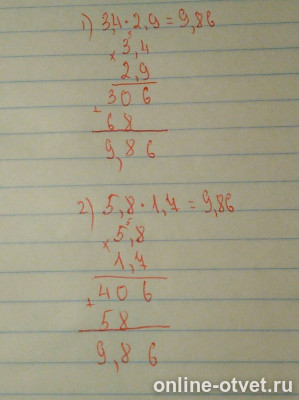 1) 3,4 · 2,9 = 9,86
3
× 3,4
2,9
306
+
68
9,86
2) 5,8 · 1,7 = 9,86
5
× 5,8
1,7
406
+
58
9,86
online-otvet.ru